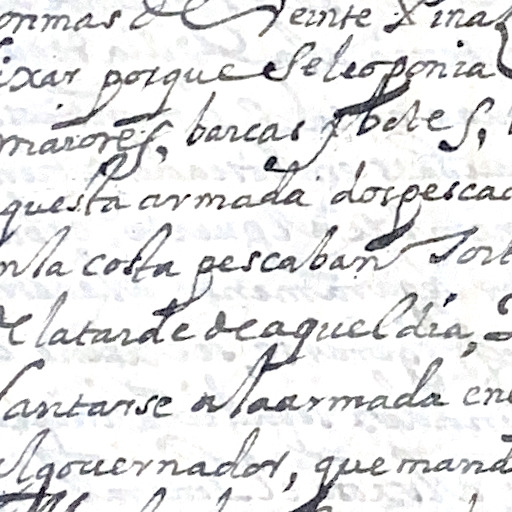 on mas de Veinte y ina
ixar porque Seleoponia
maiores, barcas y botes,
questa armada dos pescad
n la costa pescaban Tort
de la tarde de aquel dia,
lantarse a la armada en
el gouernador, que mand